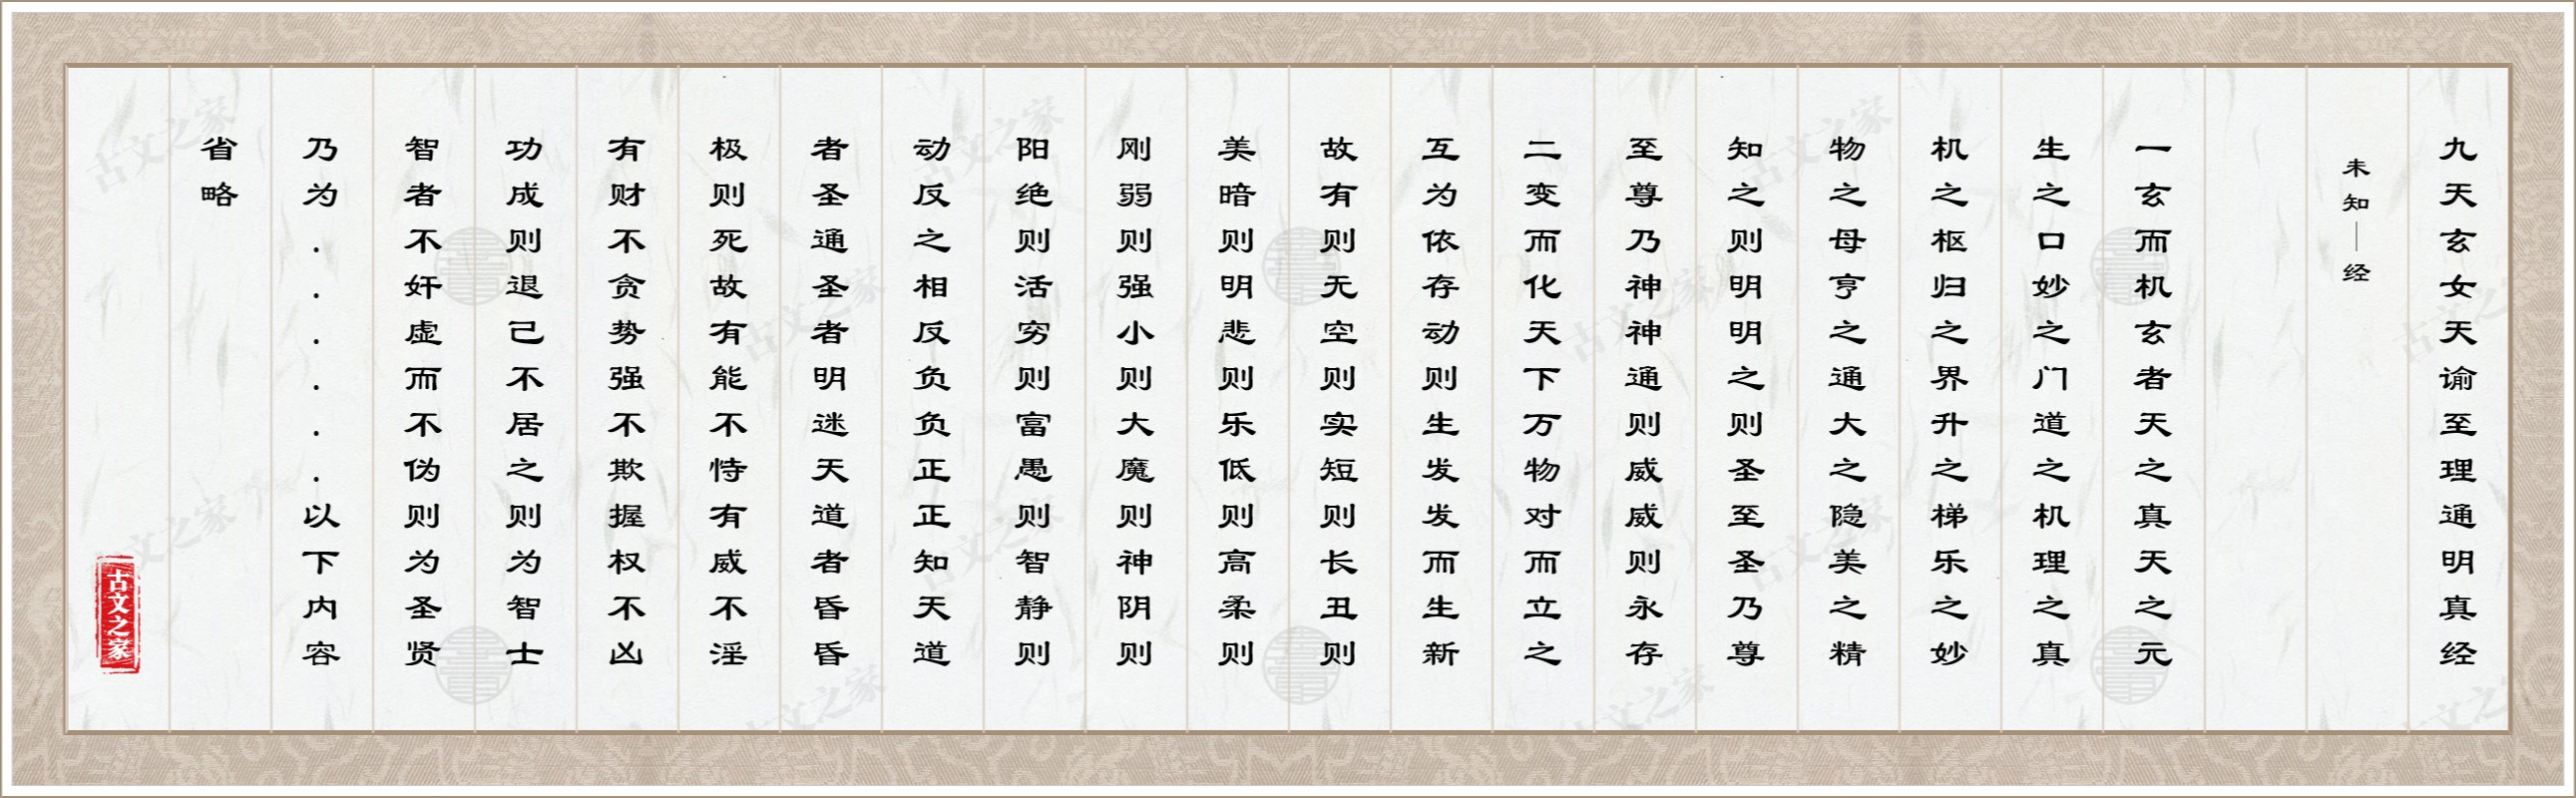 九天玄女天谕至理通明真经
未知｜经
一玄而机玄者天之真天之元
生之口妙之门道之机理之真
机之枢归之界升之梯乐之妙
物之母亨之通大之隐美之精
知之则明明之则圣至圣乃尊
至尊乃神神通则威威则永存
二变而化天下万物对而立之
互为依存动则生发发而生新
故有则无空则实短则长丑则
美暗则明悲则乐低则高柔则
刚弱则强小则大魔则神阴则
阳绝则活穷则富愚则智静则
动反之相反负负正正知天道
者圣通圣者明迷天道者昏昏
极则死故有能不恃有威不淫
有财不贪势强不欺握权不凶
功成则退己不居之则为智士
智者不奸虚而不伪则为圣贤
乃为......以下内容
省略
古文之家